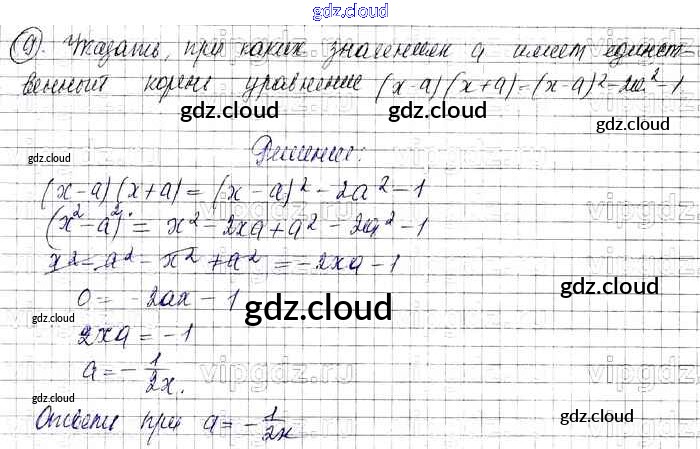 gdz.cloud
9). Указать, при каких значениях a имеет единст-
венный корень уравнение (x-a)(x+a)=(x-a)²-2a²-1
gdz.cloud
gdz.cloud
gdz.cloud
Решение:
gdz.cloud
(x-a)(x+a) = (x-a)² - 2a² - 1
(x²-a²) = x² - 2xa + a² - 2a² - 1
vipgdz.ru
x² - a² - x² + a² = -2xa - 1
0 = -2ax - 1
gdz.cloud
gdz.cloud
gdz.cloud
2xa = -1
a = -1/2x.
vipgdz.ru
gdz.cloud
gdz.cloud
Ответ: при a = -1/2x
gdz.cloud